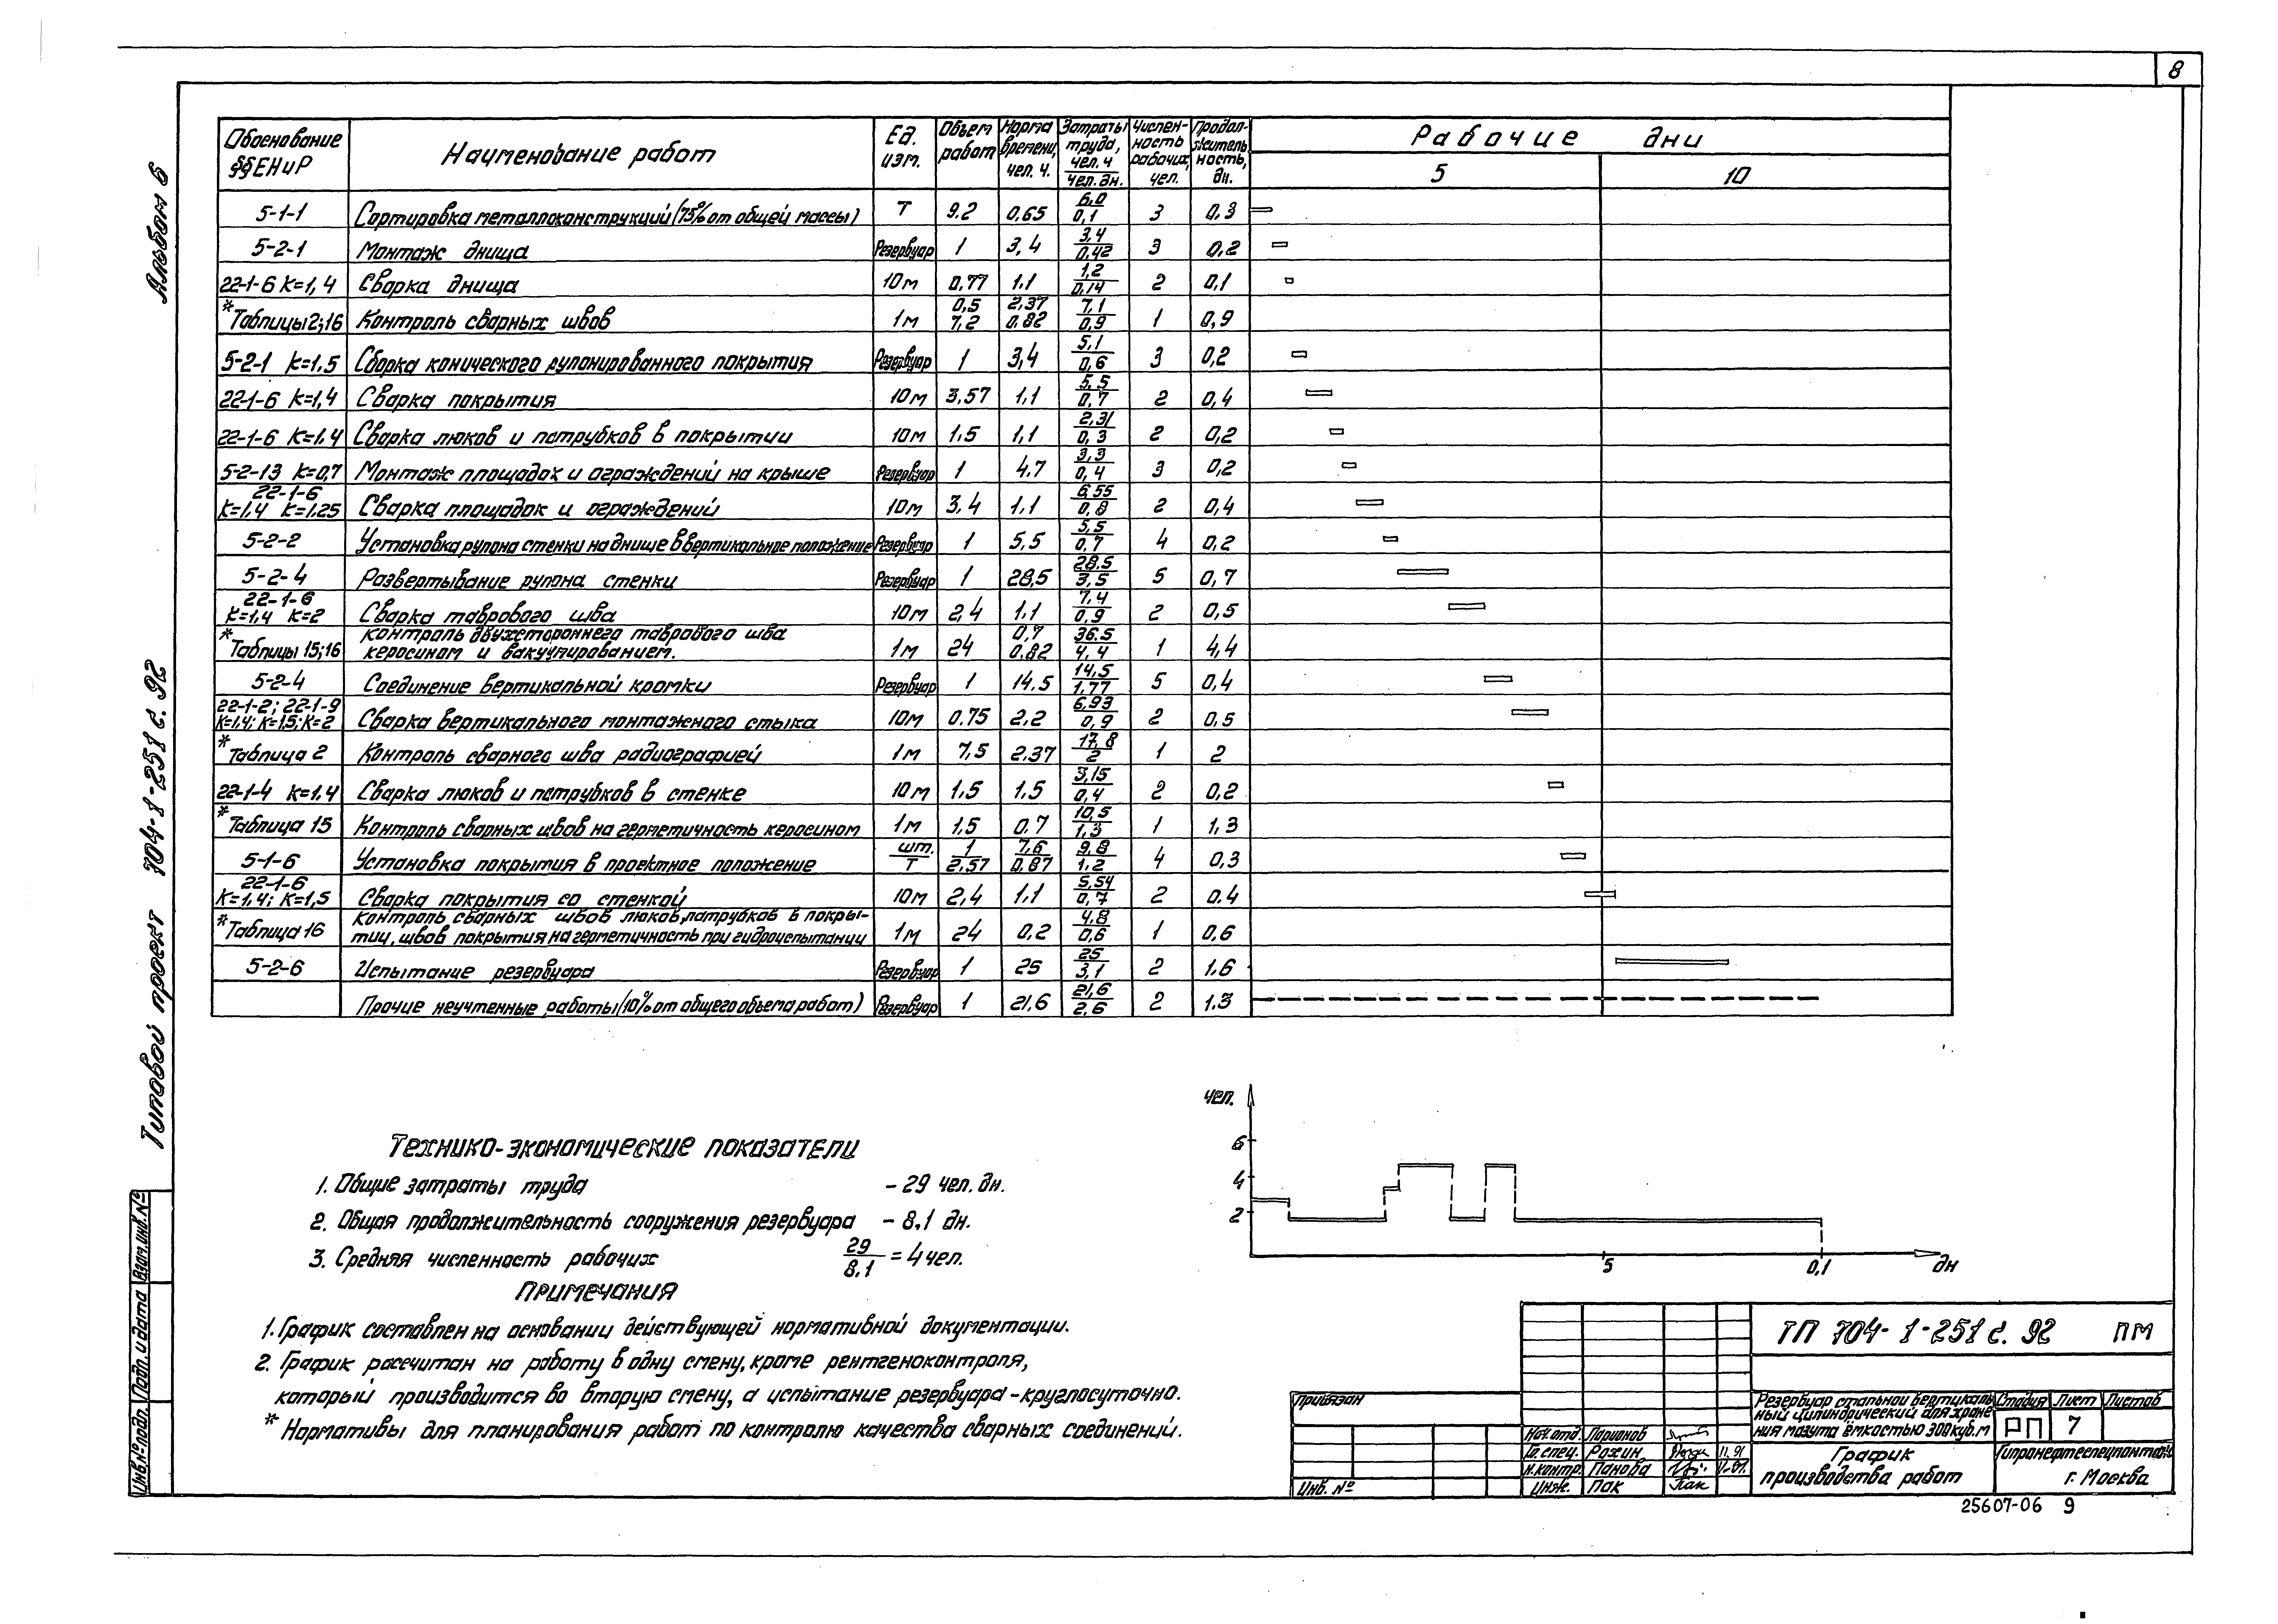 8
Альбом 6
Типовой проект 704-1-251 с. 92
Обоснование §§ЕНиР | Наименование работ | Ед. изм. | Объем работ | Норма времени, чел. ч. | Затраты труда, чел. ч / чел. дн. | Числен-ность рабочих, чел. | Продол-житель ность, дн. | Рабочие дни
5 | 10
5-1-1 | Сортировка металлоконструкций (75% от общей массы) | Т | 9.2 | 0,65 | 6,0 / 0,1 | 3 | 0,3
5-2-1 | Монтаж днища | Резервуар | 1 | 3,4 | 3,4 / 0,42 | 3 | 0,2
22-1-6 К=1,4 | Сварка днища | 10м | 0,77 | 1.1 | 1,2 / 0,14 | 2 | 0,1
*Таблицы 2;16 | Контроль сварных швов | 1м | 0,5 7,2 | 2,37 0,82 | 7,1 / 0,9 | 1 | 0,9
5-2-1 К=1.5 | Сборка конического рулонированного покрытия | Резервуар | 1 | 3,4 | 5,1 / 0,6 | 3 | 0,2
22-1-6 К=1,4 | Сварка покрытия | 10м | 3,57 | 1,1 | 5,5 / 0,7 | 2 | 0,4
22-1-6 К=1.4 | Сварка люков и патрубков в покрытии | 10м | 1.5 | 1,1 | 2,31 / 0,3 | 2 | 0,2
5-2-13 К=0,7 | Монтаж площадок и ограждений на крыше | Резервуар | 1 | 4.7 | 3,3 / 0,4 | 3 | 0,2
22-1-6 К=1,4 К=1.25 | Сварка площадок и ограждений | 10м | 3,4 | 1.1 | 6,55 / 0,8 | 2 | 0,4
5-2-2 | Установка рулона стенки на днище в вертикальное положение | Резервуар | 1 | 5,5 | 5,5 / 0,7 | 4 | 0,2
5-2-4 | Развертывание рулона стенки | Резервуар | 1 | 28,5 | 28.5 / 3,5 | 5 | 0,7
22-1-6 К=1,4 К=2 | Сварка таврового шва | 10м | 2,4 | 1.1 | 7,4 / 0,9 | 2 | 0,5
*Таблицы 15;16 | Контроль двухстороннего таврового шва керосином и вакуумированием. | 1м | 24 | 0,7 0.82 | 36.5 / 4,4 | 1 | 4,4
5-2-4 | Соединение вертикальной кромки | Резервуар | 1 | 14.5 | 14,5 / 1,77 | 5 | 0,4
22-1-2; 22-1-9 К=1,4; К=1,5; К=2 | Сварка вертикального монтажного стыка | 10м | 0.75 | 2.2 | 6,93 / 0,9 | 2 | 0,5
*Таблица 2 | Контроль сварного шва радиографией | 1м | 7,5 | 2.37 | 17,8 / 2 | 1 | 2
22-1-4 К=1.4 | Сварка люков и патрубков в стенке | 10м | 1,5 | 1.5 | 3,15 / 0,4 | 2 | 0,2
*Таблица 15 | Контроль сварных швов на герметичность керосином | 1м | 1,5 | 0,7 | 10,5 / 1,3 | 1 | 1,3
5-1-6 | Установка покрытия в проектное положение | шт. / Т | 1 / 2,57 | 7,6 / 0,87 | 9,8 / 1.2 | 4 | 0,3
22-1-6 К=1,4; К=1,5 | Сварка покрытия со стенкой | 10м | 2,4 | 1.1 | 5,54 / 0,7 | 2 | 0.4
*Таблица 16 | Контроль сварных швов люков, патрубков в покры-тии, швов покрытия на герметичность при гидроиспытании | 1м | 24 | 0,2 | 4,8 / 0,6 | 1 | 0.6
5-2-6 | Испытание резервуара | Резервуар | 1 | 25 | 25 / 3,1 | 2 | 1.6
Прочие неучтенные работы (10% от общего объема работ) | Резервуар | 1 | 21,6 | 21,6 / 2,6 | 2 | 1.3
Технико-экономические показатели
1. Общие затраты труда – 29 чел. дн.
2. Общая продолжительность сооружения резервуара – 8,1 дн.
3. Средняя численность рабочих 29 / 8,1 = 4 чел.
Примечания
1. График составлен на основании действующей нормативной документации.
2. График рассчитан на работу в одну смену, кроме рентгеноконтроля,
который производится во вторую смену, а испытание резервуара – круглосуточно.
* Нормативы для планирования работ по контролю качества сварных соединений.
чел.
6
4
2
5
0,1
дн
ТП 704-1-251 с. 92 ПМ
Резервуар стальной вертикаль
ный цилиндрический для хране
ния мазута ёмкостью 300 куб.м
Стадия Лист Листов
РП 7
График
производства работ
Гипронефтеспецмонтаж
г. Москва
Привязан
Инв. №
Нач. отд. Ларионов
Гл. спец. Рохин 11.91
Н. контр. Панова
Инж. Пак
Инв. № подл. Подп. и дата Взам. инв. №
25607-06 9